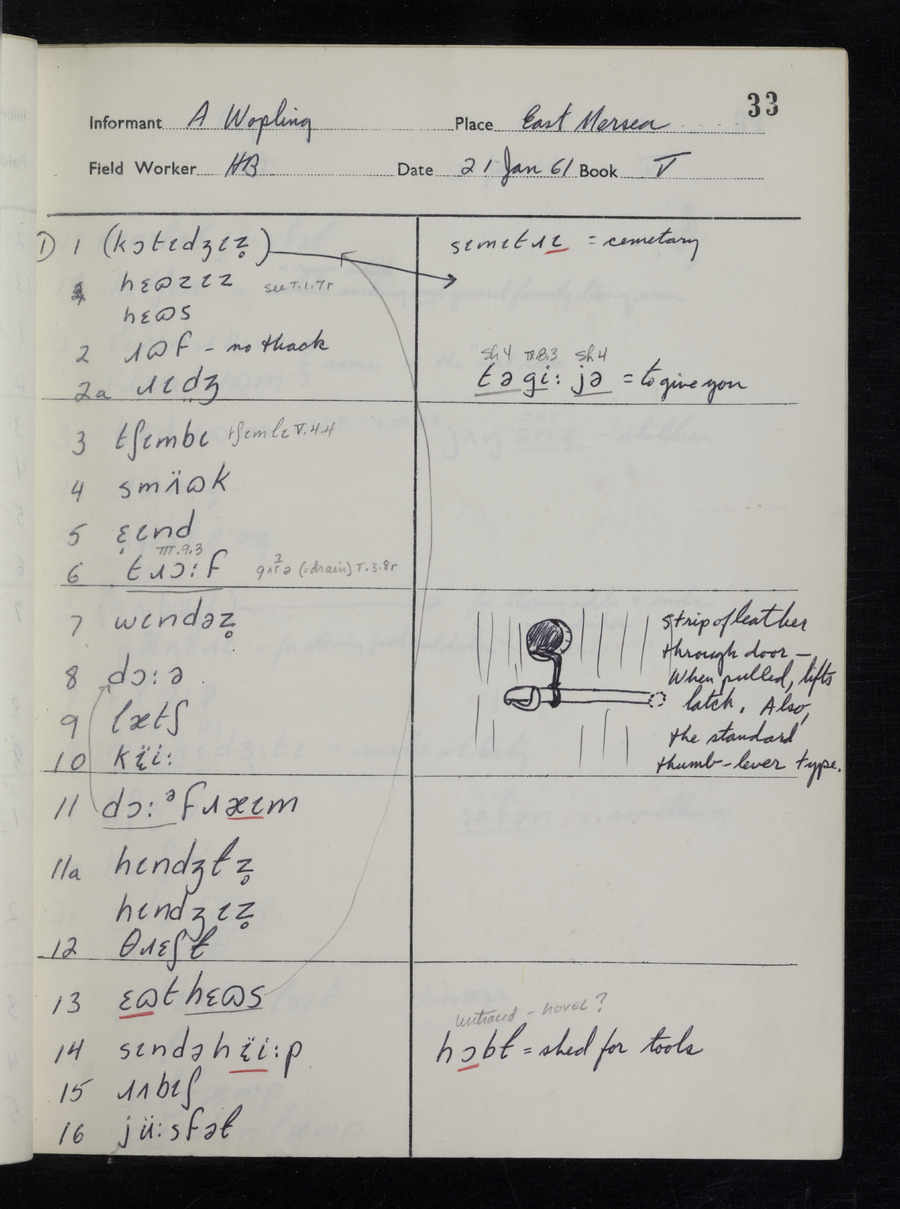 33
Informant A Wopling Place East Mersea
Field Worker HB Date 21 Jan 61 Book V
① 1 (kɔtɪdʒɪz̥)
hɛɷzɪz see V.1.7r
hɛɷs
2 ɹɷf – no thack
2a ɹɪdʒ
3 tʃɪmbɪ tʃɪmlɪ V.4.4
4 smʌ̈ɷk
5 ɛ̣ɪnd
III.9.3
6 tɹɔ:f (=drain) V.3.8r
7 wɪndəz̥
8 dɔ:ə
9 lætʃ
10 kï̞i:
11 dɔ:ᵊfɹæɪm
11a hɪndʒɫz̥
hɪndʒɪz̥
12 θɹɛʃɫ
13 ɛɷthɛɷs
14 sɪndəhï̞i:p
15 ɹʌbɪʃ
16 jü:sfəɫ
sɪmɪtɹɪ = cemetary
sh4 IX.8.3 sh4
tə gi: jə = to give you
strip of leather
through door –
When pulled, lifts
latch. Also,
the standard
thumb-lever type.
untraced – hovel?
hɔbɫ = shed for tools